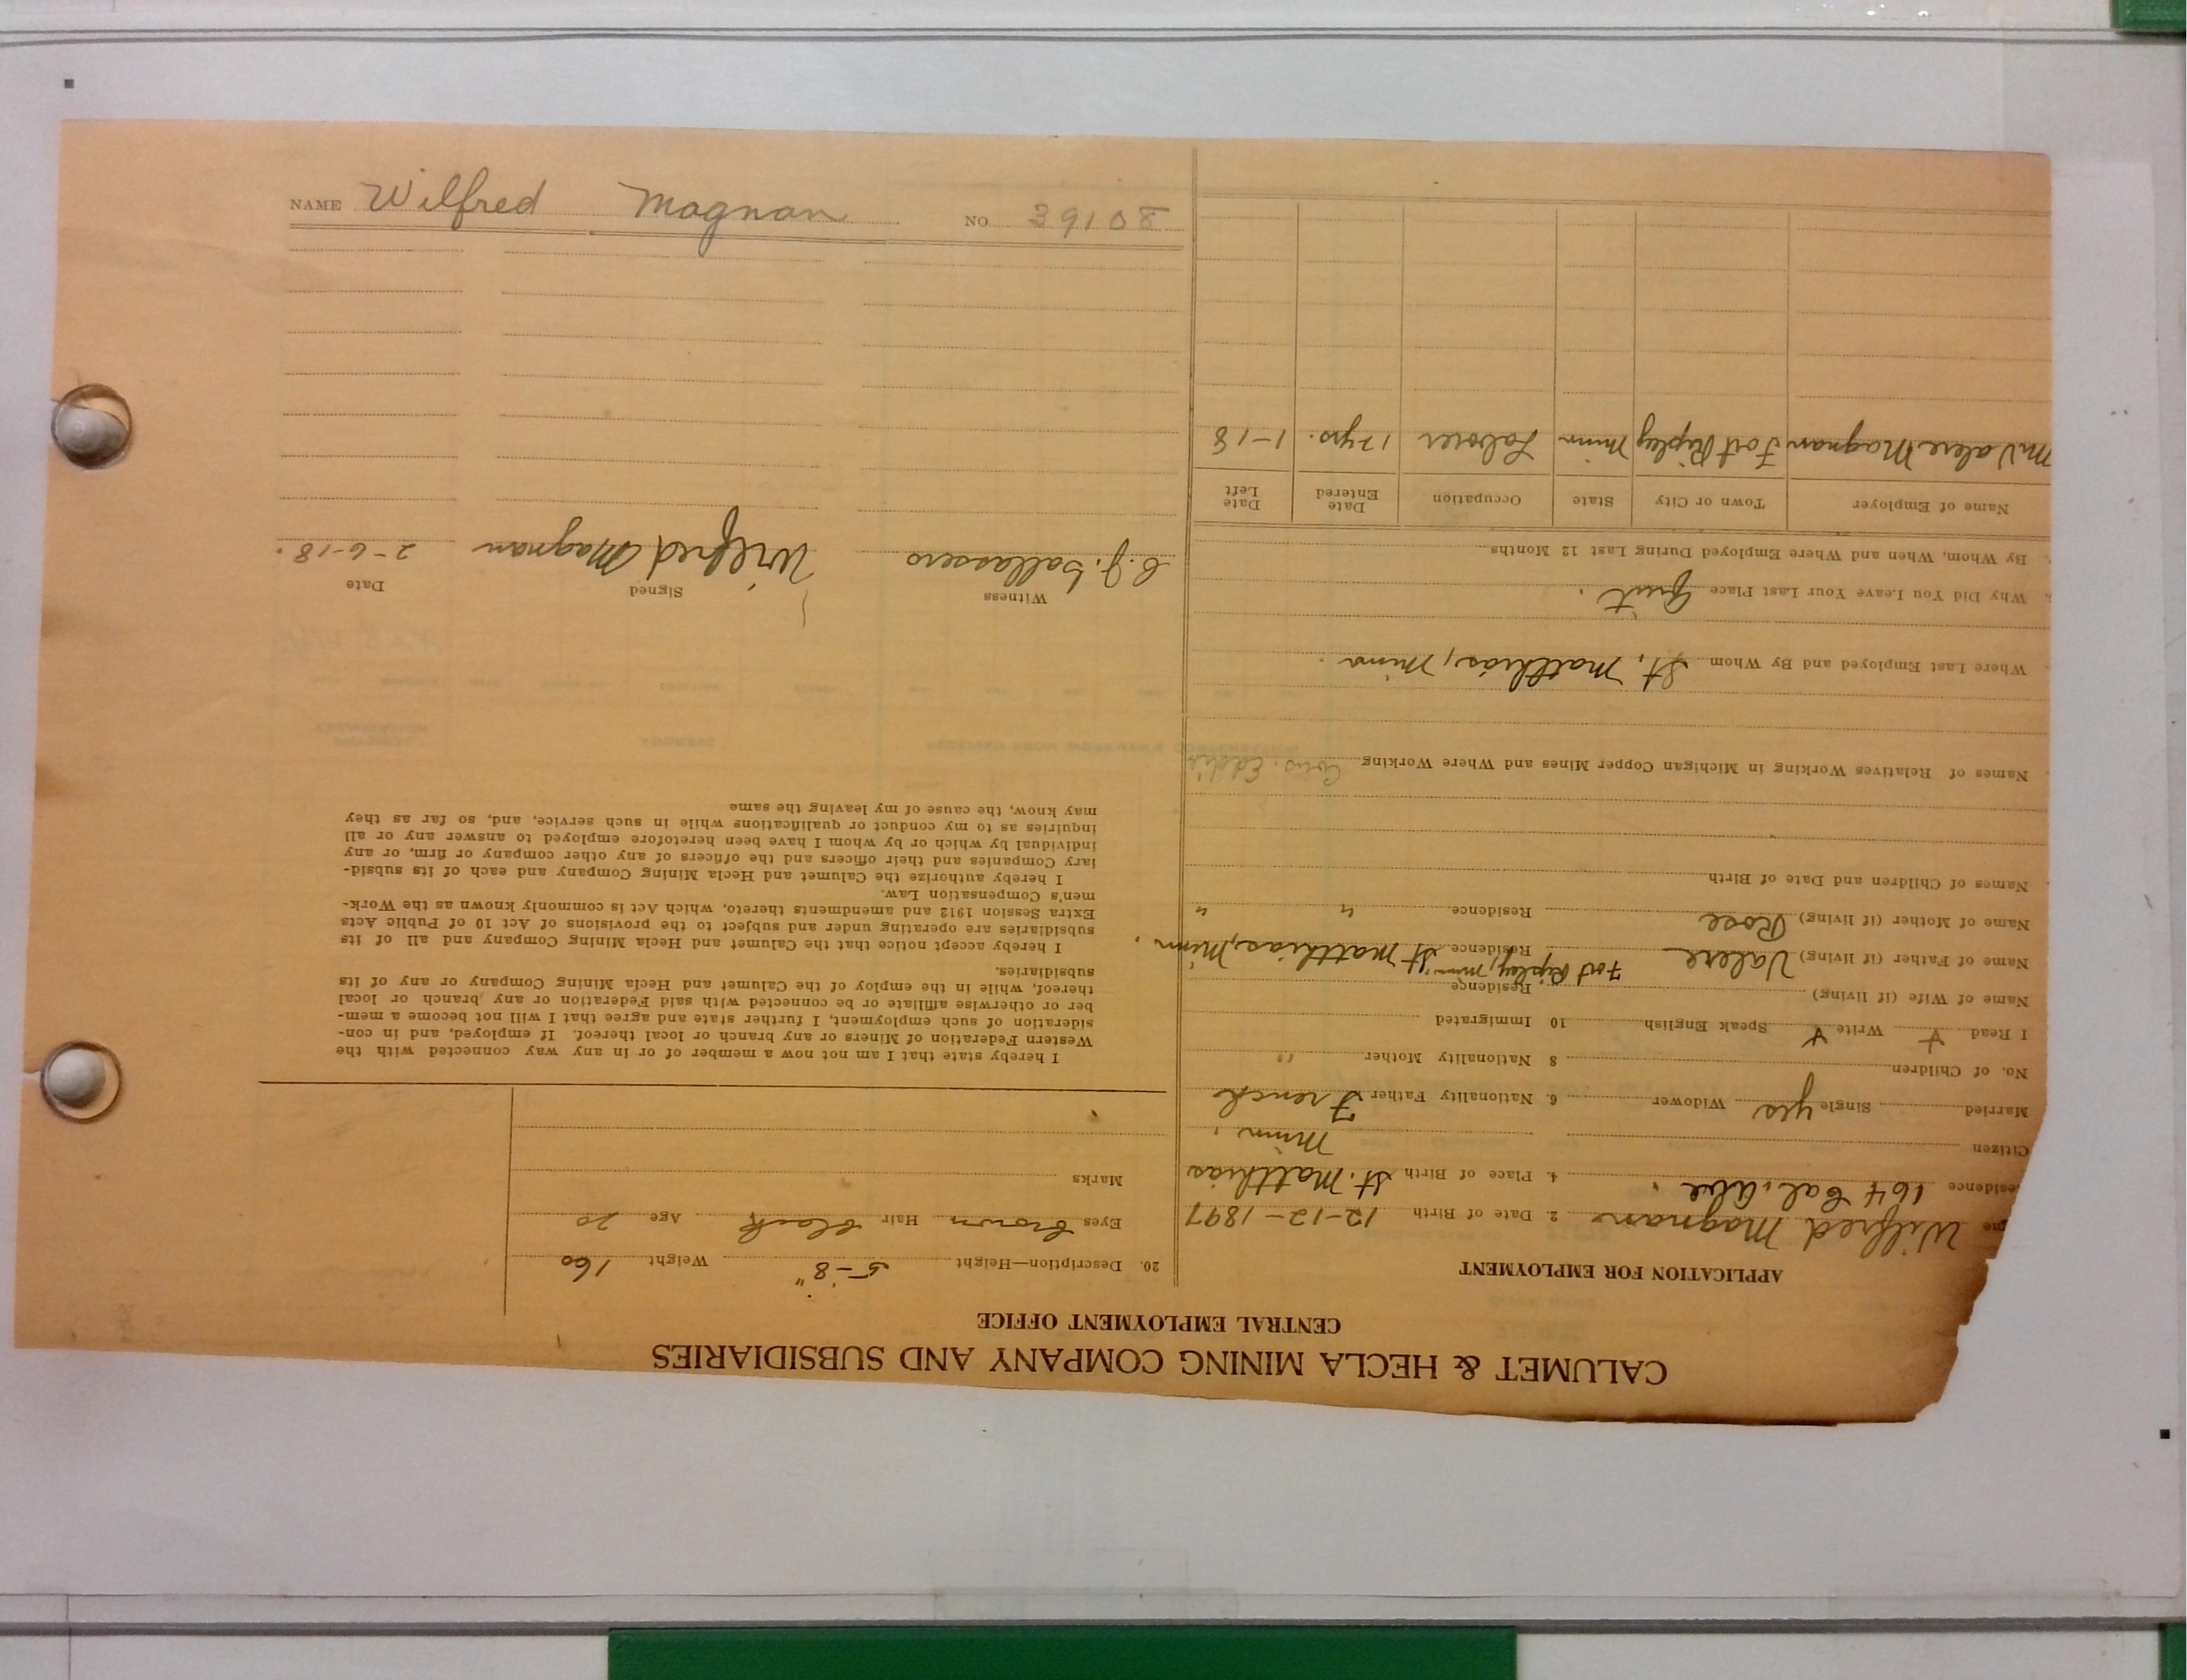 CALUMET & HECLA MINING COMPANY AND SUBSIDIARIES
CENTRAL EMPLOYMENT OFFICE
APPLICATION FOR EMPLOYMENT
me Wilfred Magnan 2. Date of Birth 12-12-1897
esidence 164 Cal. Ave. 4. Place of Birth St. Matthias
Citizen Minn.
Married Single yes Widower 6. Nationality Father French
No. of Children 8 Nationality Mother "
I Read Write Speak English 10 Immigrated
Name of Wife (if living) Residence
Fort Ripley, Minn.
Name of Father (if living) Valere Residence St Matthias, Minn.
Name of Mother (if living) Rose Residence " "
Names of Children and Date of Birth
Names of Relatives Working in Michigan Copper Mines and Where Working Cous. Eddie
Where Last Employed and By Whom St. Matthias, Minn.
Why Did You Leave Your Last Place Quit.
By Whom, When and Where Employed During Last 12 Months
Name of Employer Town or City State Occupation Date Entered Date Left
M Valere Magnan Fort Ripley Minn Laborer 17 yrs. 1-18
20. Description—Height 5-8" Weight 160
Eyes brown Hair black Age 20
Marks
I hereby state that I am not now a member of or in any way connected with the
Western Federation of Miners or any branch or local thereof. If employed, and in con-
sideration of such employment, I further state and agree that I will not become a mem-
ber or otherwise affiliate or be connected with said Federation or any branch or local
thereof, while in the employ of the Calumet and Hecla Mining Company or any of its
subsidiaries.
I hereby accept notice that the Calumet and Hecla Mining Company and all of its
subsidiaries are operating under and subject to the provisions of Act 10 of Public Acts
Extra Session 1912 and amendments thereto, which Act is commonly known as the Work-
men's Compensation Law.
I hereby authorize the Calumet and Hecla Mining Company and each of its subsid-
iary Companies and their officers and the officers of any other company or firm, or any
individual by which or by whom I have been heretofore employed to answer any or all
inquiries as to my conduct or qualifications while in such service, and, so far as they
may know, the cause of my leaving the same
Witness Signed Date
Wilfred Magnan 2-6-18.
NAME Wilfred Magnan NO 39108